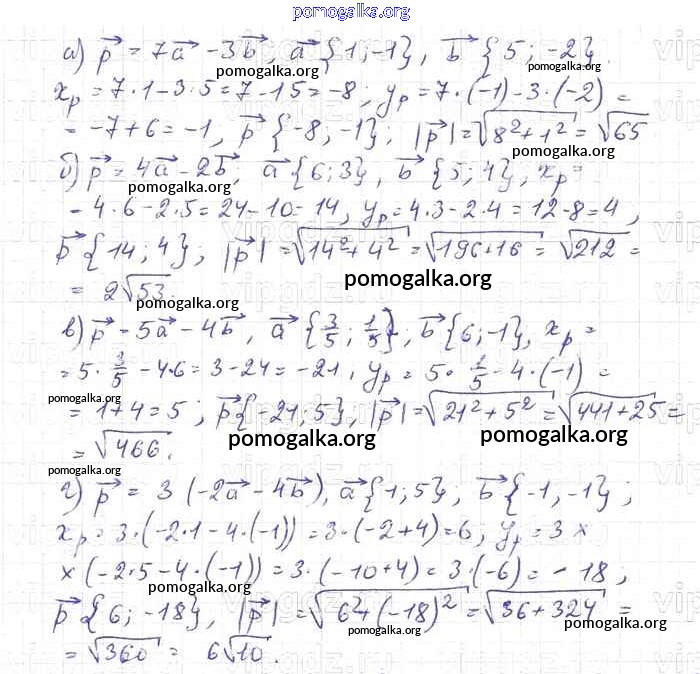 pomogalka.org
а) p⃗ = 7a⃗ - 3b⃗, a⃗ {1; -1}, b⃗ {5; -2}.
pomogalka.org pomogalka.org
x_p = 7·1 - 3·5 = 7 - 15 = -8; y_p = 7·(-1) - 3·(-2) =
pomogalka.org
= -7 + 6 = -1, p⃗ {-8; -1}; |p⃗| = √(8² + 1²) = √65
pomogalka.org
б) p⃗ = 4a⃗ - 2b⃗; a⃗ {6; 3}, b⃗ {5; 4}, x_p =
pomogalka.org
- 4·6 - 2·5 = 24 - 10 = 14, y_p = 4·3 - 2·4 = 12 - 8 = 4,
p⃗ {14; 4}; |p⃗| = √(14² + 4²) = √(196 + 16) = √212 =
pomogalka.org
= 2√53.
pomogalka.org
в) p⃗ - 5a⃗ - 4b⃗, a⃗ {3/5; 1/5}; b⃗ {6; -1}, x_p =
= 5 · 3/5 - 4·6 = 3 - 24 = -21, y_p = 5 · 1/5 - 4·(-1) =
pomogalka.org pomogalka.org
= 1 + 4 = 5; p⃗ {-21; 5}, |p⃗| = √(21² + 5²) = √(441 + 25) =
pomogalka.org pomogalka.org
= √466.
г) p⃗ = 3(-2a⃗ - 4b⃗), a⃗ {1; 5}; b⃗ {-1, -1};
x_p = 3·(-2·1 - 4·(-1)) = 3·(-2 + 4) = 6; y_p = 3 ×
× (-2·5 - 4·(-1)) = 3·(-10 + 4) = 3·(-6) = -18;
pomogalka.org
p⃗ {6; -18}, |p⃗| = √(6² + (-18)²) = √(36 + 324) =
pomogalka.org pomogalka.org
= √360 = 6√10.
pomogalka.org